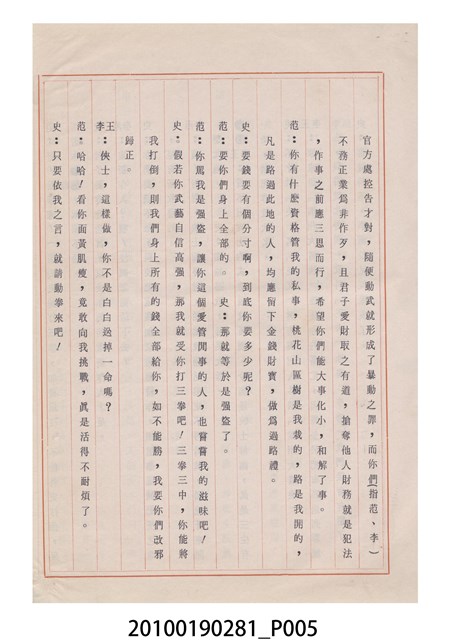 官方處控告才對，隨便動武就形成了暴動之罪，而你們(指范、李)
不務正業爲非作歹，且君子愛財取之有道，搶奪他人財務就是犯法
，作事之前應三思而行，希望你們能大事化小，和解了事。
范：你有什麼資格管我的私事，桃花山區樹是我栽的，路是我開的，
凡是路過此地的人，均應留下金錢財寶，做爲過路禮。
史：要錢要有個分寸啊，到底你要多少呢？
范：要你們身上全部的。　史：那就等於是强盜了。
范：你罵我是强盜，讓你這個愛管閒事的人，也嘗嘗我的滋味吧！
史：假若你武藝自信高强，那我就受你打三拳吧！三拳三中，你能將
我打倒，則我們身上所有的錢全部給你，如不能勝，我要你們改邪
歸正。
王李：俠士，這樣做，你不是白白送掉一命嗎？
范：哈哈！看你面黃肌瘦，竟敢向我挑戰，眞是活得不耐煩了。
史：只要依我之言，就請動拳來吧！
20100190281_P005